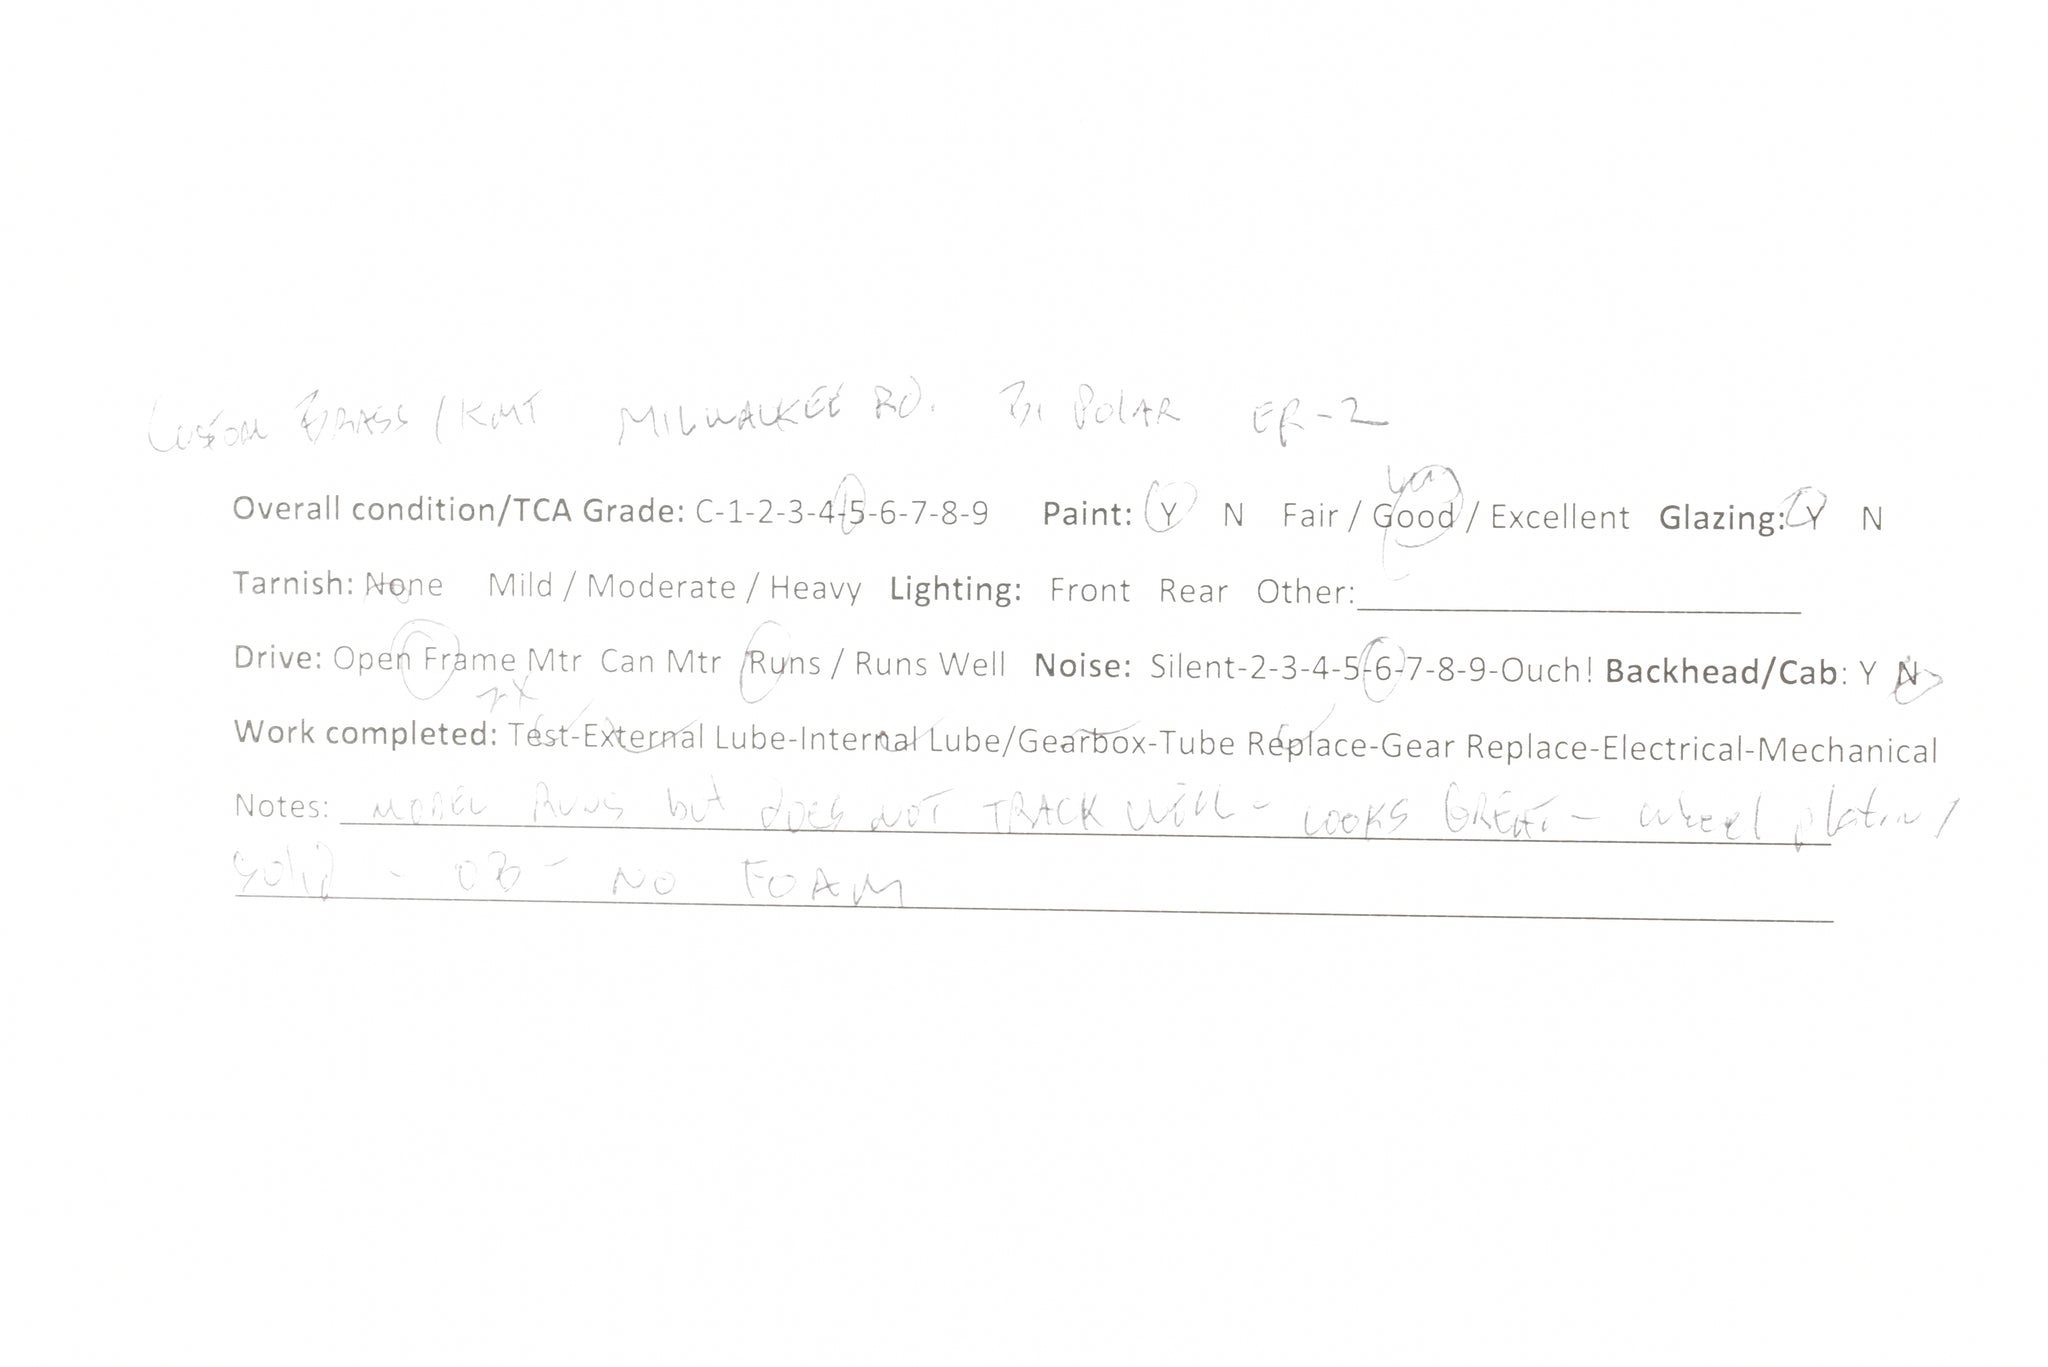 Custom BRASS / KMT MILWAUKEE RD. Bi POLAR EP-2
Very
Overall condition/TCA Grade: C-1-2-3-4-5-6-7-8-9 Paint: Y N Fair / Good / Excellent Glazing: Y N
Tarnish: None Mild / Moderate / Heavy Lighting: Front Rear Other:
Drive: Open Frame Mtr Can Mtr Runs / Runs Well Noise: Silent-2-3-4-5-6-7-8-9-Ouch! Backhead/Cab: Y N
2X
Work completed: Test-External Lube-Internal Lube/Gearbox-Tube Replace-Gear Replace-Electrical-Mechanical
Notes: MODEL RUNS but DOES NOT TRACK WELL - LOOKS GREAT - wheel plating
Solid - OB - NO FOAM